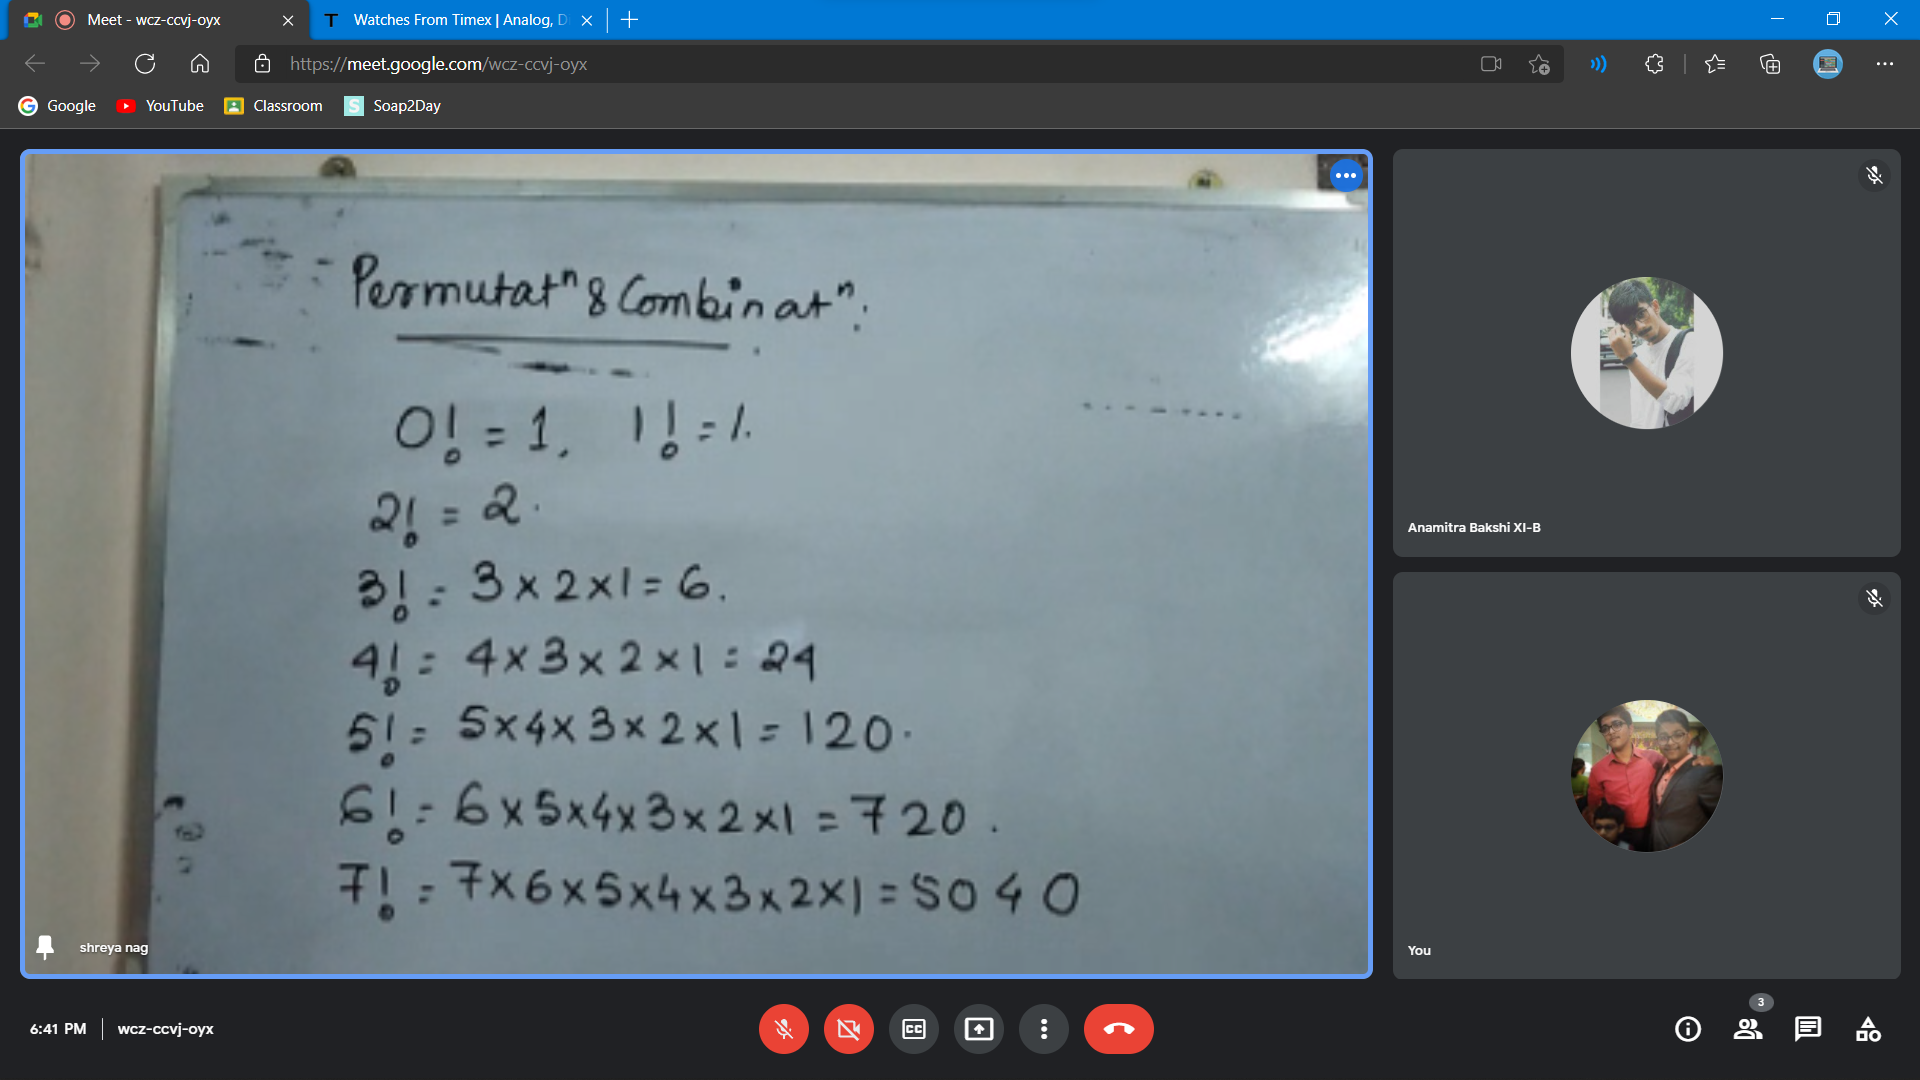 Meet - wcz-ccvj-oyx
Watches From Timex | Analog, D
https://meet.google.com/wcz-ccvj-oyx
Google YouTube Classroom Soap2Day
Permutatⁿ & Combinatⁿ:
0! = 1, 1! = 1.
2! = 2.
3! = 3 x 2 x 1 = 6.
4! = 4 x 3 x 2 x 1 = 24
5! = 5 x 4 x 3 x 2 x 1 = 120.
6! = 6 x 5 x 4 x 3 x 2 x 1 = 720.
7! = 7 x 6 x 5 x 4 x 3 x 2 x 1 = 5040
shreya nag
Anamitra Bakshi XI-B
You
6:41 PM | wcz-ccvj-oyx
CC
3